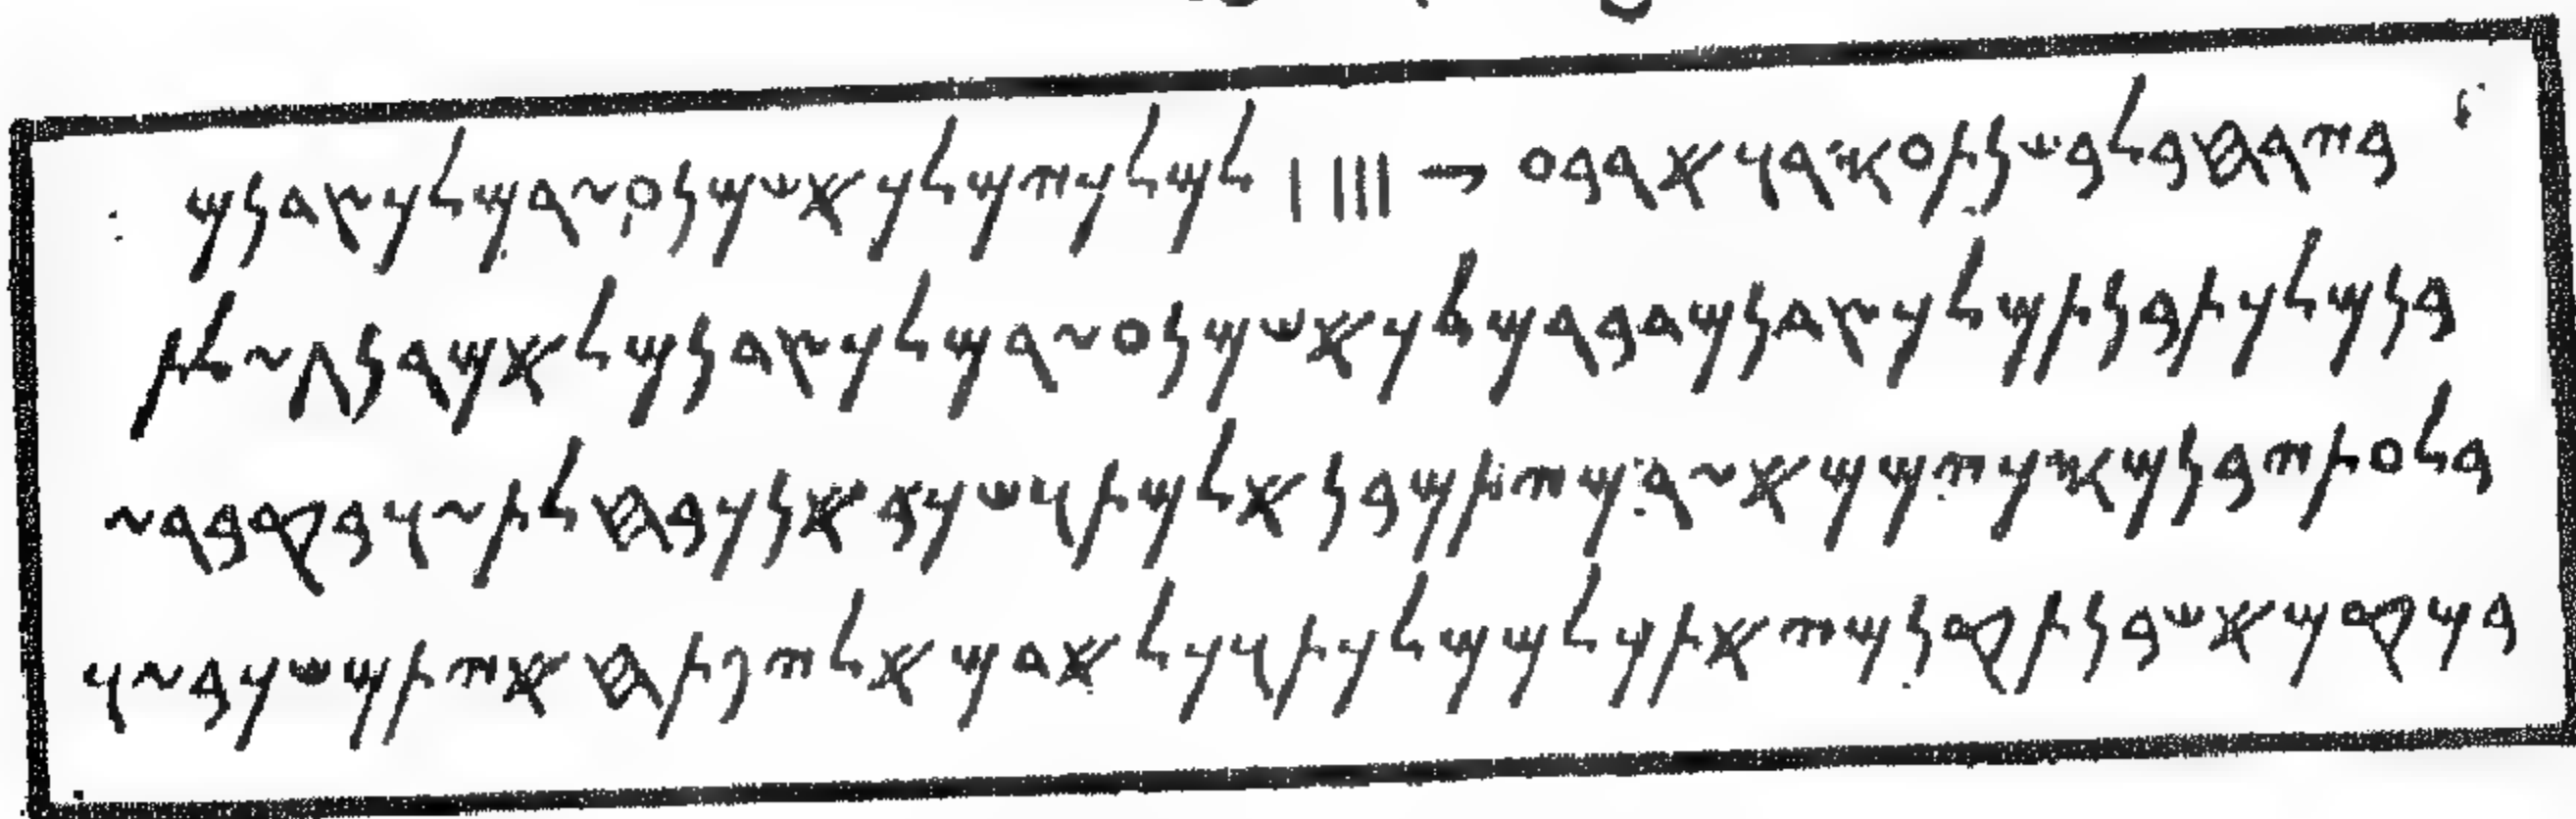 𐤁𐤉𐤓𐤇𐤁𐤋𐤁𐤔𐤍𐤕𐤏𐤎𐤓𐤅𐤀𐤓𐤁𐤏 𐤗 𐤖𐤖𐤖 𐤖 𐤋𐤌𐤋𐤊𐤉𐤌𐤋𐤊𐤀𐤔𐤌𐤍𐤏𐤆𐤓𐤌𐤋𐤊𐤑𐤃𐤍𐤌
𐤁𐤍𐤌𐤋𐤊𐤕𐤁𐤍𐤕𐤌𐤋𐤊𐤑𐤃𐤍𐤌𐤃𐤁𐤓𐤌𐤋𐤊𐤀𐤔𐤌𐤍𐤏𐤆𐤓𐤌𐤋𐤊𐤑𐤃𐤍𐤌𐤋𐤀𐤌𐤓𐤍𐤂𐤆𐤋𐤕
𐤁𐤋𐤏𐤕𐤉𐤁𐤍𐤌𐤎𐤊𐤉𐤌𐤌𐤀𐤆𐤓𐤌𐤉𐤕𐤌𐤁𐤍𐤀𐤋𐤌𐤕𐤅𐤔𐤊𐤁𐤀𐤍𐤊𐤁𐤇𐤋𐤕𐤆𐤅𐤁𐤒𐤁𐤓𐤆
𐤁𐤌𐤒𐤌𐤀𐤔𐤁𐤍𐤕𐤒𐤍𐤌𐤉𐤀𐤕𐤊𐤋𐤌𐤌𐤋𐤊𐤕𐤅𐤊𐤋𐤀𐤃𐤌𐤀𐤋𐤉𐤐𐤕𐤇𐤀𐤉𐤕𐤌𐤔𐤊𐤁𐤆𐤅